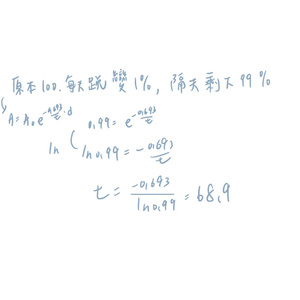 原本100.每天蹺讚1%，隔天剩下99%
A=A₀e^(-0.693/t·d)
0.99=e^(-0.693/t)
ln
ln0.99=-0.693/t
t=-0.693/ln0.99=68.9